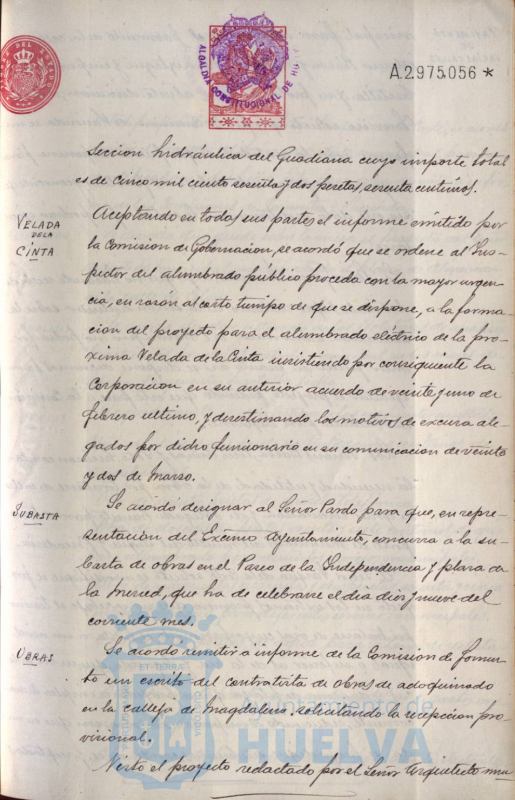 A.2975.056 *
ALCALDIA CONSTITUCIONAL DE HUELVA
Seccion hidráulica del Guadiana cuyo importe total
es de cinco mil ciento sesenta y dos pesetas, sesenta centimos.
VELADA
DE LA
CINTA
Aceptando en todas sus partes el informe emitido por
la Comision de Gobernacion, se acordó que se ordene al Ins-
pector del alumbrado público proceda con la mayor urgen-
cia, en razón al corto tiempo de que se dispone, a la forma-
cion del proyecto para el alumbrado eléctrico de la pro-
xima Velada de la Cinta insistiendo por consiguiente la
Corporacion en su anterior acuerdo de veinte y uno de
febrero ultimo, y desestimando los motivos de excusa ale-
gados por dicho funcionario en su comunicacion de veinte
y dos de Marzo.
SUBASTA
Se acordó designar al Señor Pardo para que, en repre-
sentación del Excmo Ayuntamiento, concurra a la su-
basta de obras en el Paseo de la Independencia y plaza de
la Merced, que ha de celebrarse el dia diez y nueve del
corriente mes.
OBRAS
Se acordó remitir a informe de la Comision de fomen-
to un escrito del contratista de obras de adoquinado
en la calleja de Magdalena solicitando la recepcion pro-
visional.
Visto el proyecto redactado por el Señor Arquitecto mu-
Ayuntamiento de
HUELVA